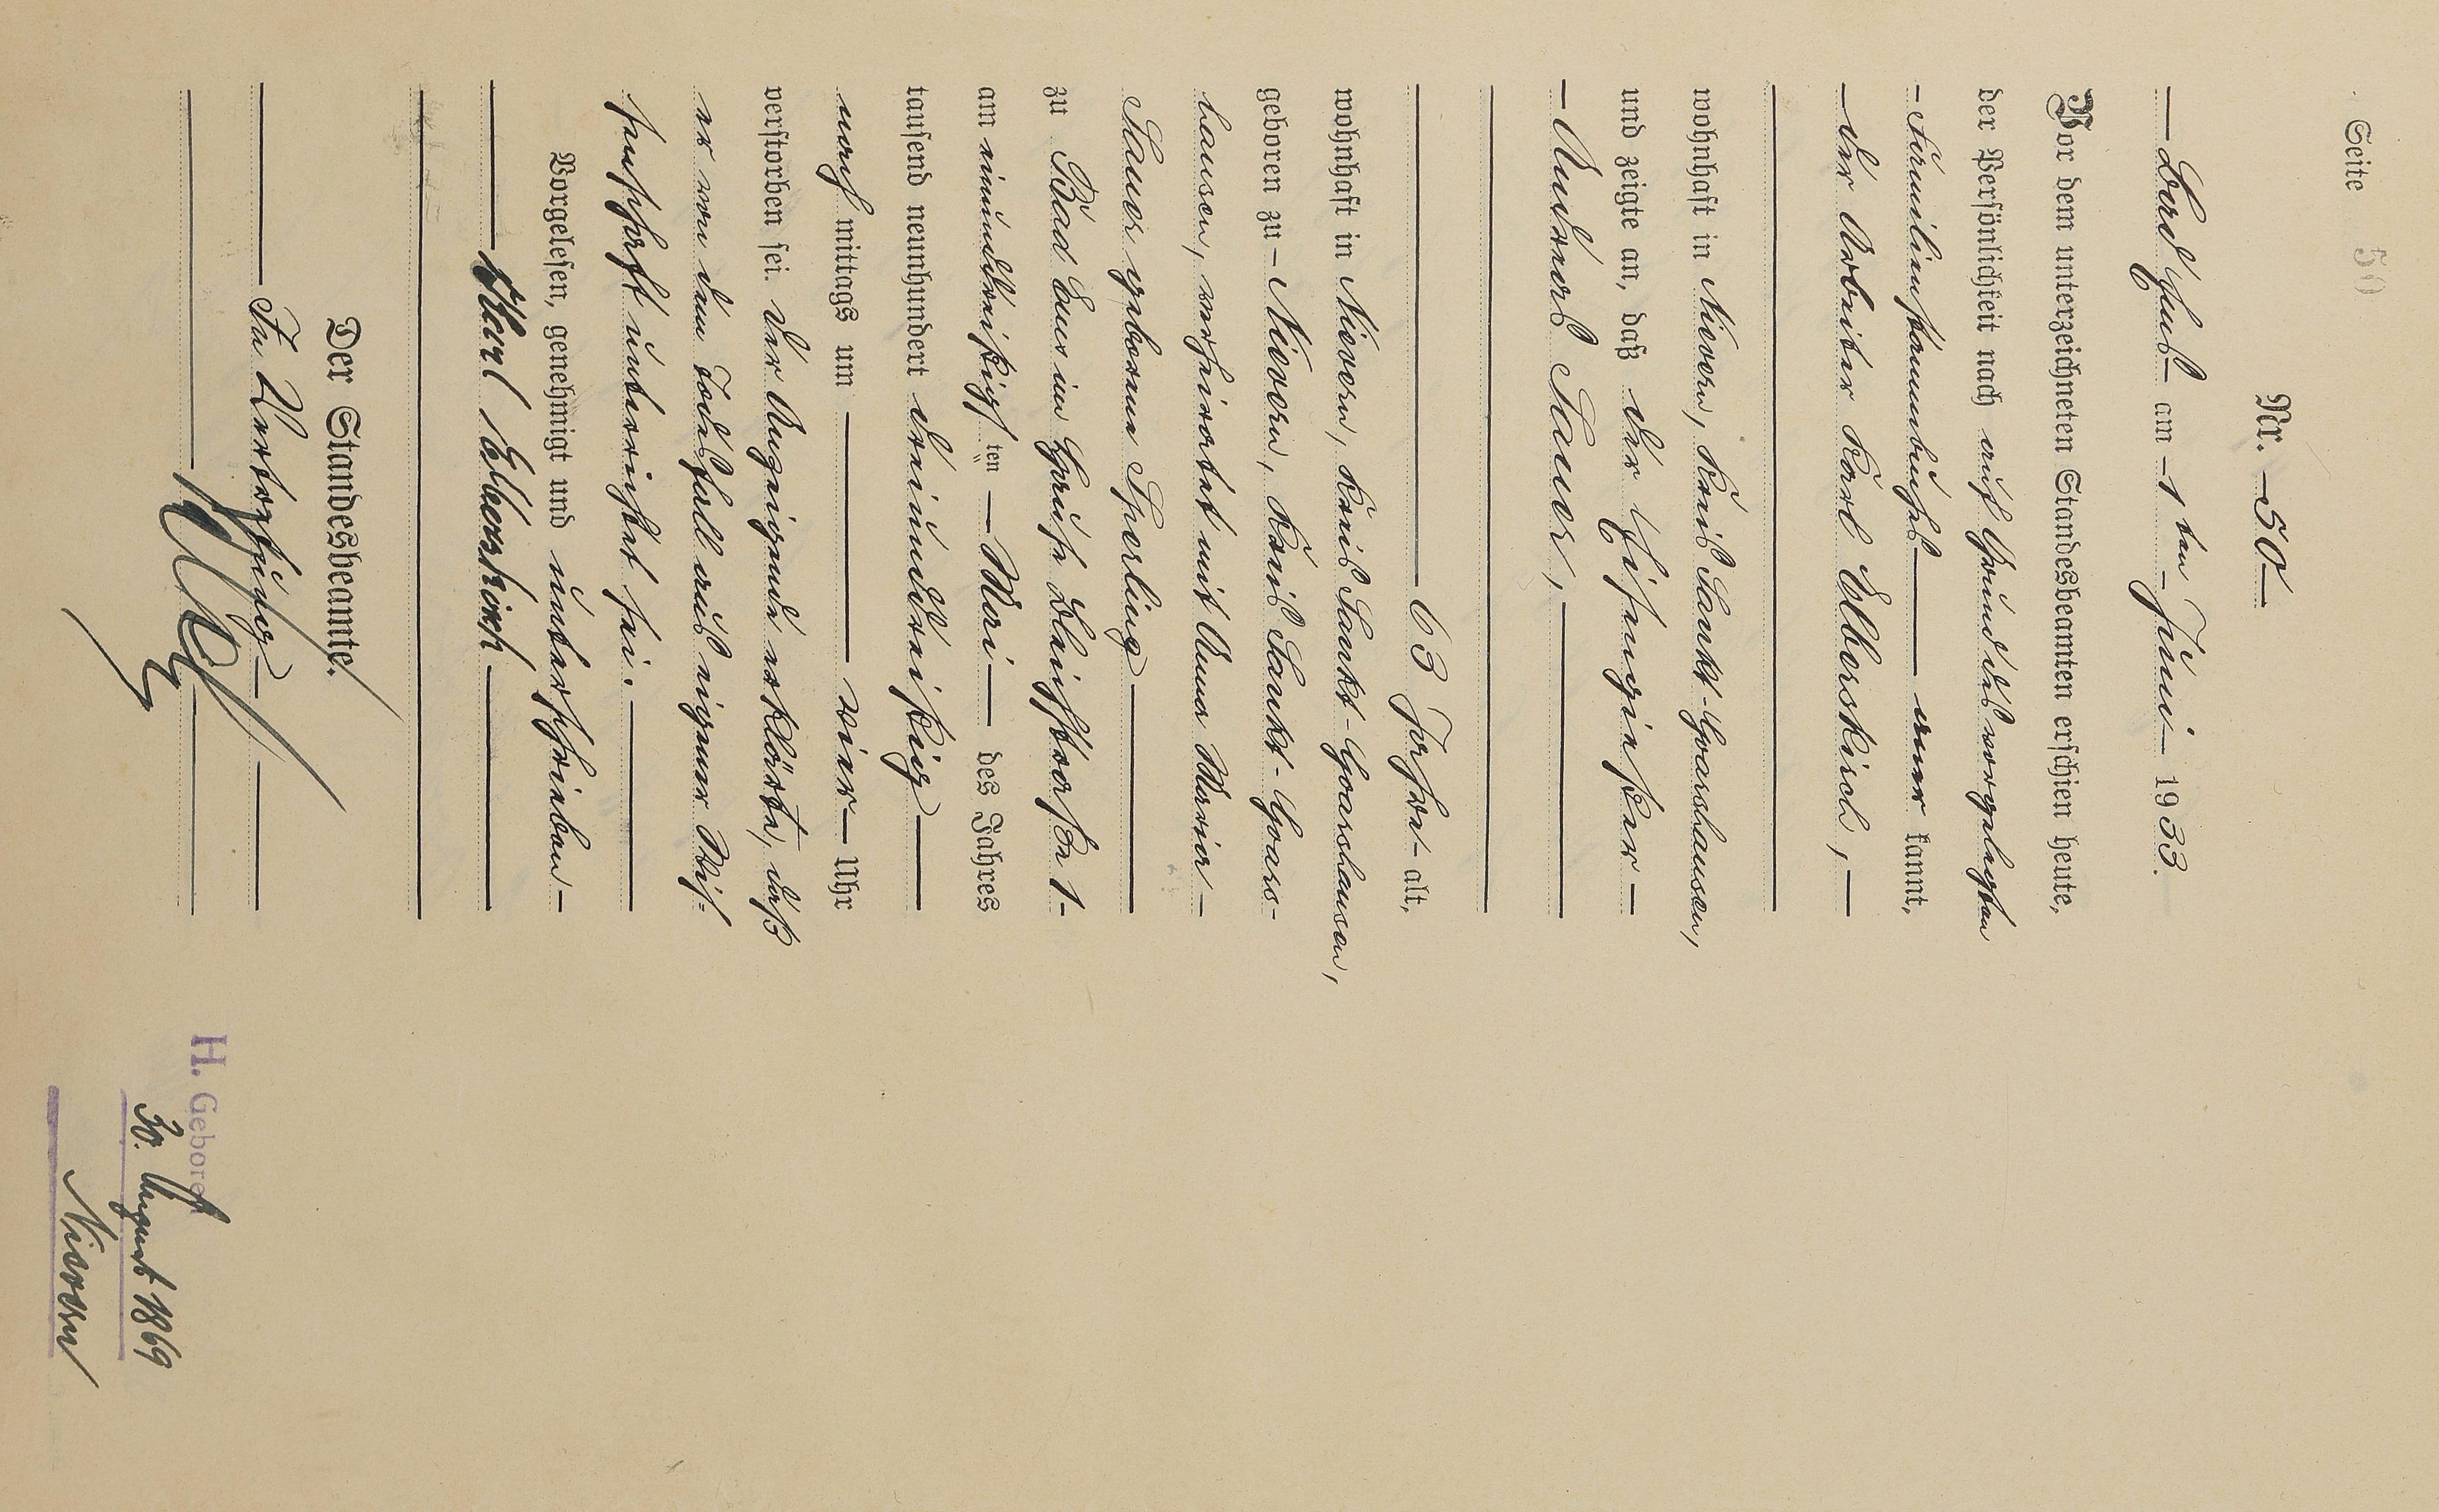 Seite 50
Nr. 50
Bad Ems am 1ten Juni 1933.
Vor dem unterzeichneten Standesbeamten erschien heute,
der Persönlichkeit nach auf Grund des vorgelegten
Familienstammbuchs aner kannt,
der Arbeiter Karl Elberskirch,
wohnhaft in Nievern, Kreis Sankt-Goarshausen,
und zeigte an, daß der
Andreas Sauer,
63 Jahre alt,
wohnhaft in Nievern, Kreis Sankt-Goarshausen,
geboren zu Nievern, Kreis Sankt-Goars-
hausen, verheiratet mit Anna Maria
Sauer geborene Sperling
zu Bad Ems im Hause Bleichstraße 1
am einunddreißigsten Mai des Jahres
tausend neunhundert dreiunddreißig
nach mittags um vier Uhr
verstorben sei. Der Anzeigende erklärte, daß
er von dem Todesfall aus eigener Wis-
senschaft unterrichtet sei.
Vorgelesen, genehmigt und unterschrieben
Karl Elberskirch
Der Standesbeamte.
In Vertretung
H. Geboren
30. August 1869
Nievern